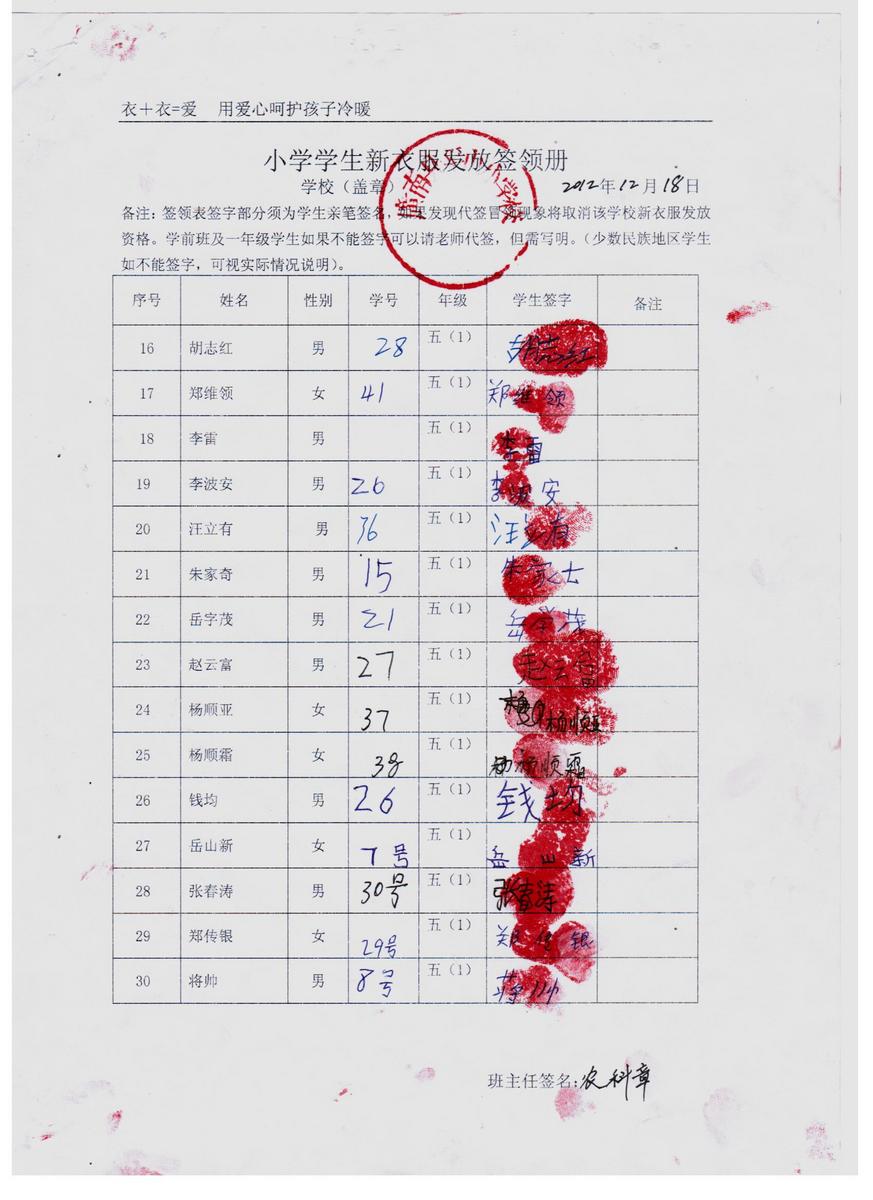 衣+衣=爱 用爱心呵护孩子冷暖
小学学生新衣服发放签领册
学校（盖章） 2012年12月18日
备注：签领表签字部分须为学生亲笔签名，如果发现代签冒领现象将取消该学校新衣服发放
资格。学前班及一年级学生如果不能签字可以请老师代签，但需写明。（少数民族地区学生
如不能签字，可视实际情况说明）。
序号 姓名 性别 学号 年级 学生签字 备注
16 胡志红 男 28 五（1） 胡志红
17 郑维领 女 41 五（1） 郑维领
18 李雷 男 五（1） 李雷
19 李波安 男 26 五（1） 李波安
20 汪立有 男 36 五（1） 汪立有
21 朱家奇 男 15 五（1） 朱家士
22 岳字茂 男 21 五（1） 岳字茂
23 赵云富 男 27 五（1） 赵云富
24 杨顺亚 女 37 五（1） 杨顺亚
25 杨顺霜 女 38 五（1） 杨顺霜
26 钱均 男 26 五（1） 钱均
27 岳山新 女 7号 五（1） 岳山新
28 张春涛 男 30号 五（1） 张春涛
29 郑传银 女 29号 五（1） 郑传银
30 将帅 男 8号 五（1） 蒋帅
班主任签名：农科章